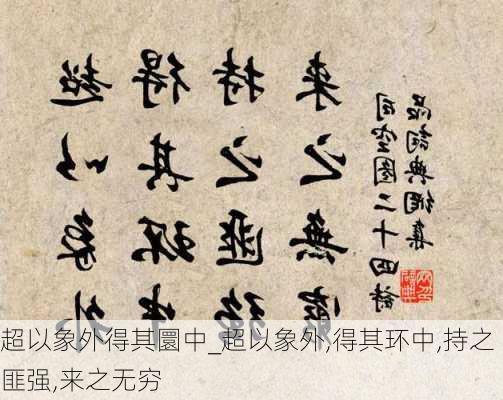 超以象外
得其環中
持之匪强
来之無窮
司空图二十四诗
品詞典網集
超以象外得其圜中_超以象外,得其环中,持之
匪强,来之无穷